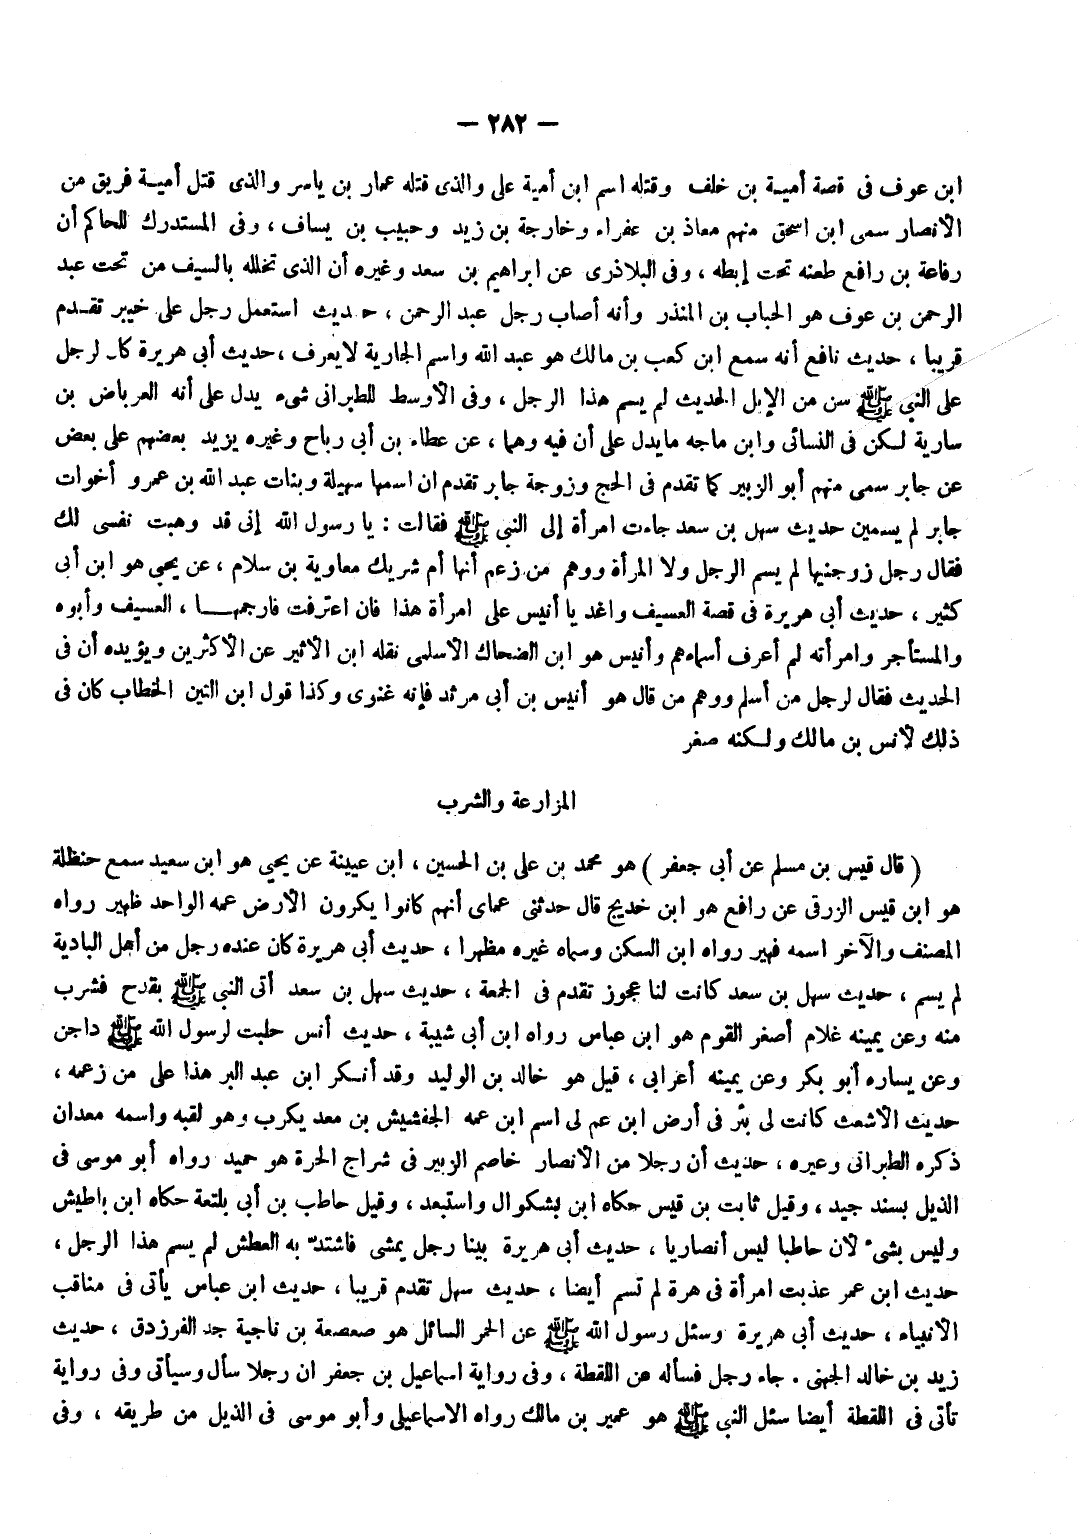 — ٢٨٢ —
ابن عوف فى قصة أمية بن خلف وقتله اسم ابن أمية على والذى قتله عمار بن ياسر والذى قتل أمية فريق من
الأنصار سمى ابن اسحق منهم معاذ بن عفراء وخارجة بن زيد وحبيب بن يساف ، وفى المستدرك للحاكم أن
رفاعة بن رافع طعنه تحت إبطه ، وفى البلاذرى عن ابراهيم بن سعد وغيره أن الذى تخلله بالسيف من تحت عبد
الرحمن بن عوف هو الحباب بن المنذر وأنه أصاب رجل عبد الرحمن ، حديث استعمل رجل على خيبر تقدم
قريبا ، حديث نافع أنه سمع ابن كعب بن مالك هو عبد الله واسم الجارية لا يعرف ، حديث أبى هريرة كان لرجل
على النبى ﷺ سن من الإبل الحديث لم يسم هذا الرجل ، وفى الأوسط للطبرانى شىء يدل على أنه العرباض بن
سارية لكن فى النسائى وابن ماجه ما يدل على أن فيه وهما ، عن عطاء بن أبى رباح وغيره يزيد بعضهم على بعض
عن جابر سمى منهم أبو الزبير كما تقدم فى الحج وزوجة جابر تقدم ان اسمها سهيلة وبنات عبد الله بن عمرو أخوات
جابر لم يسمين حديث سهل بن سعد جاءت امرأة إلى النبى ﷺ فقالت : يا رسول الله إنى قد وهبت نفسى لك
فقال رجل زوجنيها لم يسم الرجل ولا المرأة ووهم من زعم أنها أم شريك معاوية بن سلام ، عن يحيى هو ابن أبى
كثير ، حديث أبى هريرة فى قصة العسيف واغد يا أنيس على امرأة هذا فان اعترفت فارجمها ، العسيف وأبوه
والمستأجر وامرأته لم أعرف أسماءهم وأنيس هو ابن الضحاك الأسلمى نقله ابن الأثير عن الأكثرين ويؤيده أن فى
الحديث فقال لرجل من أسلم ووهم من قال هو أنيس بن أبى مرثد فإنه غنوى وكذا قول ابن التين الخطاب كان فى
ذلك لأنس بن مالك ولكنه صغر
المزارعة والشرب
( قال قيس بن مسلم عن أبى جعفر ) هو محمد بن على بن الحسين ، ابن عيينة عن يحيى هو ابن سعيد سمع حنظلة
هو ابن قيس الزرقى عن رافع هو ابن خديج قال حدثنى عماى أنهم كانوا يكرون الأرض عمه الواحد ظهير رواه
المصنف والآخر اسمه فهير رواه ابن السكن وسماه غيره مظهرا ، حديث أبى هريرة كان عنده رجل من أهل البادية
لم يسم ، حديث سهل بن سعد كانت لنا عجوز تقدم فى الجمعة ، حديث سهل بن سعد أتى النبى ﷺ بقدح فشرب
منه وعن يمينه غلام أصغر القوم هو ابن عباس رواه ابن أبى شيبة ، حديث أنس حلبت لرسول الله ﷺ داجن
وعن يساره أبو بكر وعن يمينه أعرابى ، قيل هو خالد بن الوليد وقد أنكر ابن عبد البر هذا على من زعمه ،
حديث الأشعث كانت لى بئر فى أرض ابن عم لى اسم ابن عمه الجفشيش بن معد يكرب وهو لقبه واسمه معدان
ذكره الطبرانى وغيره ، حديث أن رجلا من الأنصار خاصم الزبير فى شراج الحرة هو حميد رواه أبو موسى فى
الذيل بسند جيد ، وقيل ثابت بن قيس حكاه ابن بشكوال واستبعد ، وقيل حاطب بن أبى بلتعة حكاه ابن باطيش
وليس بشىء لأن حاطبا ليس أنصاريا ، حديث أبى هريرة بينا رجل يمشى فاشتد به العطش لم يسم هذا الرجل ،
حديث ابن عمر عذبت امرأة فى هرة لم تسم أيضا ، حديث سهل تقدم قريبا ، حديث ابن عباس يأتى فى مناقب
الأنبياء ، حديث أبى هريرة وسئل رسول الله ﷺ عن الحمر السائل هو صعصعة بن ناجية جد الفرزدق ، حديث
زيد بن خالد الجهنى . جاء رجل فسأله عن اللقطة ، وفى رواية اسماعيل بن جعفر ان رجلا سأل وسيأتى وفى رواية
تأتى فى اللقطة أيضا سئل النبى ﷺ هو عمير بن مالك رواه الاسماعيلى وأبو موسى فى الذيل من طريقه ، وفى